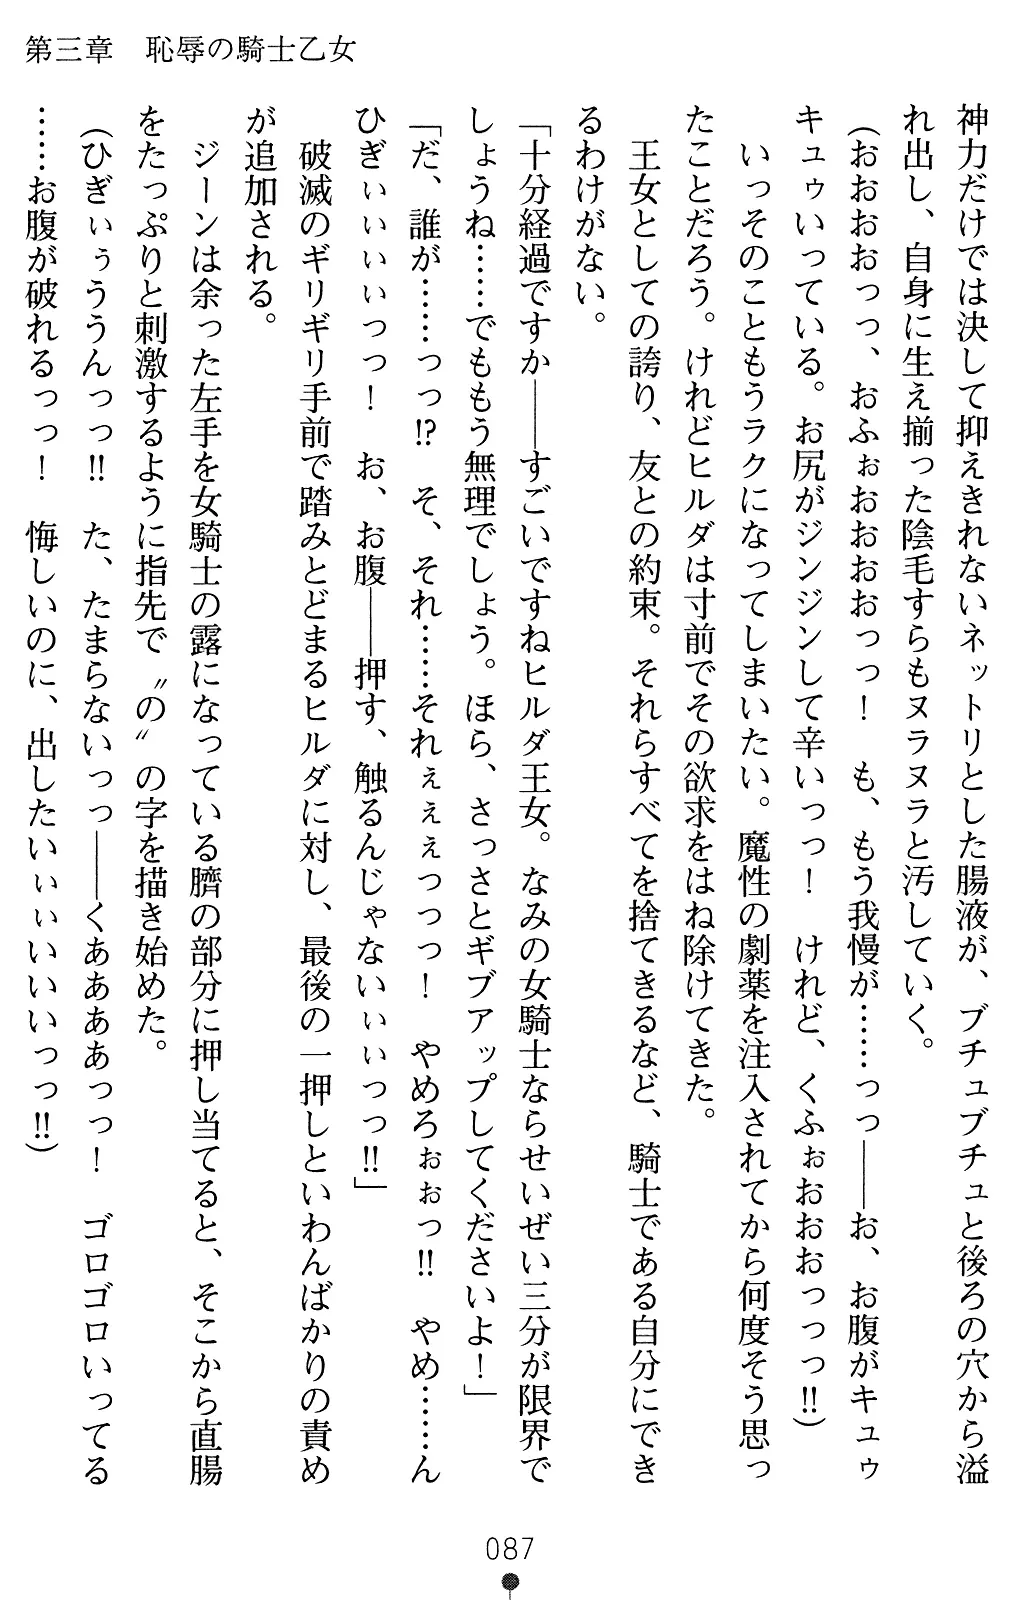 第三章　恥辱の騎士乙女
神力だけでは決して抑えきれないネットリとした腸液が、ブチュブチュと後ろの穴から溢
れ出し、自身に生え揃った陰毛すらもヌラヌラと汚していく。
（おおおおっっ、おふぉおおおおっっ！　も、もう我慢が……っっ――お、お腹がキュゥ
キュゥいっている。お尻がジンジンして辛いっっ！　けれど、くふぉおおおっっっ‼）
　いっそのこともうラクになってしまいたい。魔性の劇薬を注入されてから何度そう思っ
たことだろう。けれどヒルダは寸前でその欲求をはね除けてきた。
　王女としての誇り、友との約束。それらすべてを捨てきるなど、騎士である自分にでき
るわけがない。
「十分経過ですか――すごいですねヒルダ王女。なみの女騎士ならせいぜい三分が限界で
しょうね……でももう無理でしょう。ほら、さっさとギブアップしてくださいよ！」
「だ、誰が……っっ⁉　そ、それ……それぇぇぇっっっ！　やめろぉぉっ‼　やめ……ん
ひぎぃぃぃぃっっ！　お、お腹――押す、触るんじゃないぃぃっっ‼」
　破滅のギリギリ手前で踏みとどまるヒルダに対し、最後の一押しといわんばかりの責め
が追加される。
　ジーンは余った左手を女騎士の露になっている臍の部分に押し当てると、そこから直腸
をたっぷりと刺激するように指先で〝の〟の字を描き始めた。
（ひぎぃぅううんっっ‼　た、たまらないっっ――くああああっっ！　ゴロゴロいってる
……お腹が破れるっっ！　悔しいのに、出したいぃぃいいいっっ‼）
087